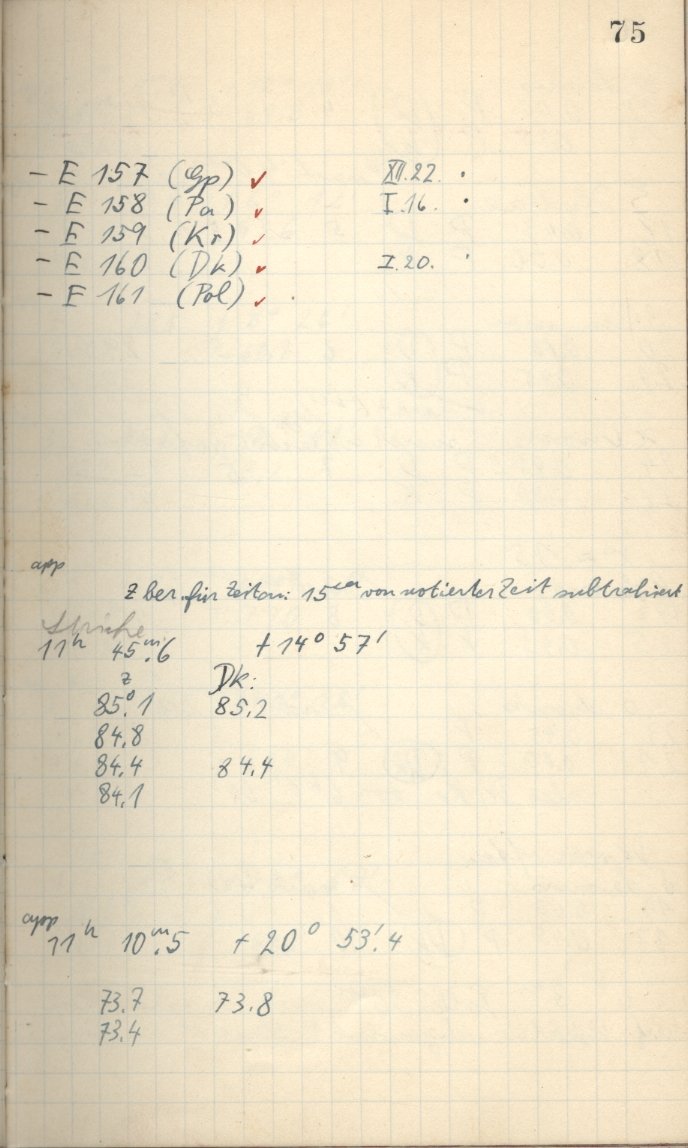 75
- E 157 (Gp) ✓ XII.22. .
- E 158 (Pa) ✓ I.16. .
- E 159 (Kr) ✓
- E 160 (Dk) ✓ I.20. .
- E 161 (Pol) ✓
app
z ber. für Zeiten: 15 von notierter Zeit subtrahiert
Striche
11h 45m.6 + 14° 57'
z Dk:
85°.1 85,2
84,8
84,4 84,4
84,1
app
11h 10m.5 + 20° 53'.4
73.7 73.8
73.4